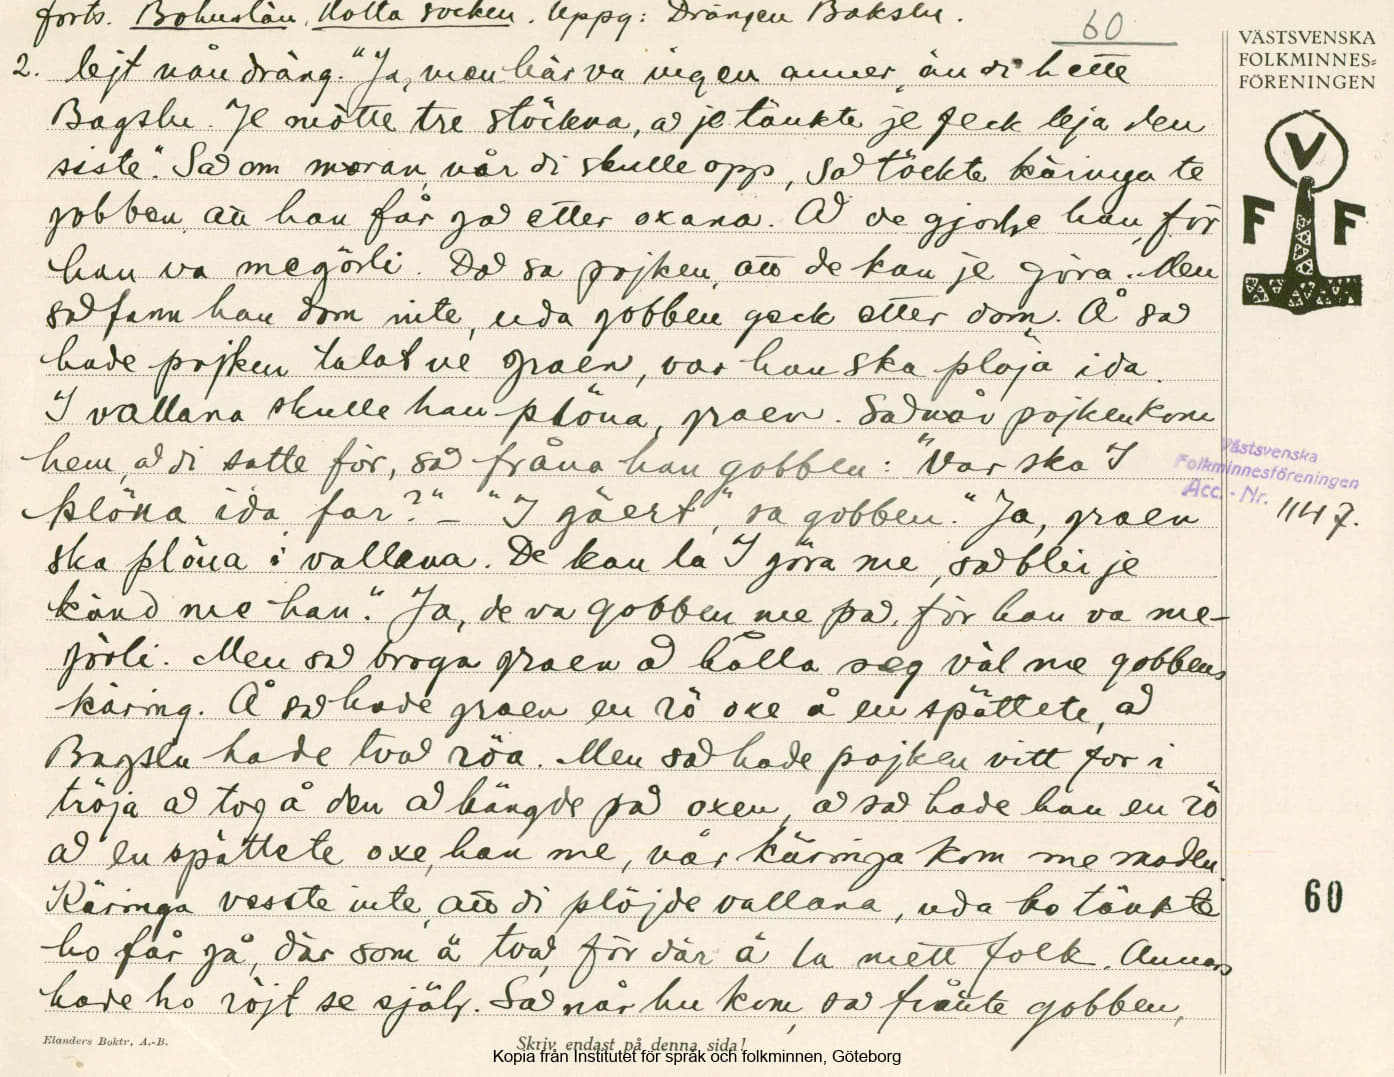 forts. Bohuslän, Hotta socken. Uppg: Drängen Bakslu.
60
2. lejt nån dräng." "Ja, men här va ingen anner, än di hette
Bagslu. Je mötte tre stöckna, å je tänkte je feck leja den
siste". Så om moran, når di skulle opp, så töckte käringa te
gobben, att han får gå etter oxana. Å de gjorde han, för
han va megörli. Då sa pojken, att de kan je göra. Men
så fann han dom inte, uda gobben geck etter dom. Å så
hade pojken talat ve graen, var han ska plöja ida.
I vallana skulle han plöna, graen. Så når pojken kom
hem, å di satte för, så fråna han gobben: "Var ska I
plöna ida, far?" – "I gäert", sa gobben. "Ja, graen
ska plöna i vallana. De kan la I göra me, så blir je
känd me han." Ja, de va gobben me på, för han va me-
jörli. Men så broga graen å hålla seg väl me gobbens
käring. Å så hade graen en rö oxe å en spättete, å
Bagslu hade två röa. Men så hade pojken vitt for i
tröja å tog å den å hängde på oxen, å så hade han en rö
å en spättete oxe, han me, når käringa kom me maden.
Käringa vesste inte, att di plöjde vallana, uda ho tänkte
ho får gå, där som ä två, för där ä la mett folk. Annars
hade ho röjt se själv. Så når hu kom, så frånte gobben,
VÄSTSVENSKA
FOLKMINNES-
FÖRENINGEN
V
F F
Västsvenska
Folkminnesföreningen
Acc. - Nr. 1147.
60
Elanders Boktr. A.-B.
Skriv endast på denna sida!
Kopia från Institutet för språk och folkminnen, Göteborg